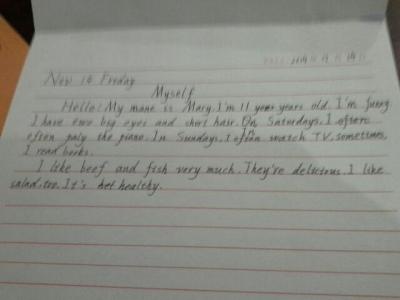 Nov 14 Friday
Myself
Hello! My mane is Mary. I'm 11 years old. I'm funny
I have two big eyes and short hair. On Saturdays, I
often paly the piano. In Sundays, I often watch TV, sometimes,
I read books.
I like beef and fish very much. They're delicious. I like
salad, too. It's healthy.